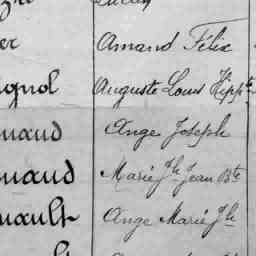 er Amand Félix
gnol Auguste Louis Hippte
naud Ange Joseph
naud Marie Jh Jean Bte
nault Ange Marie Jh